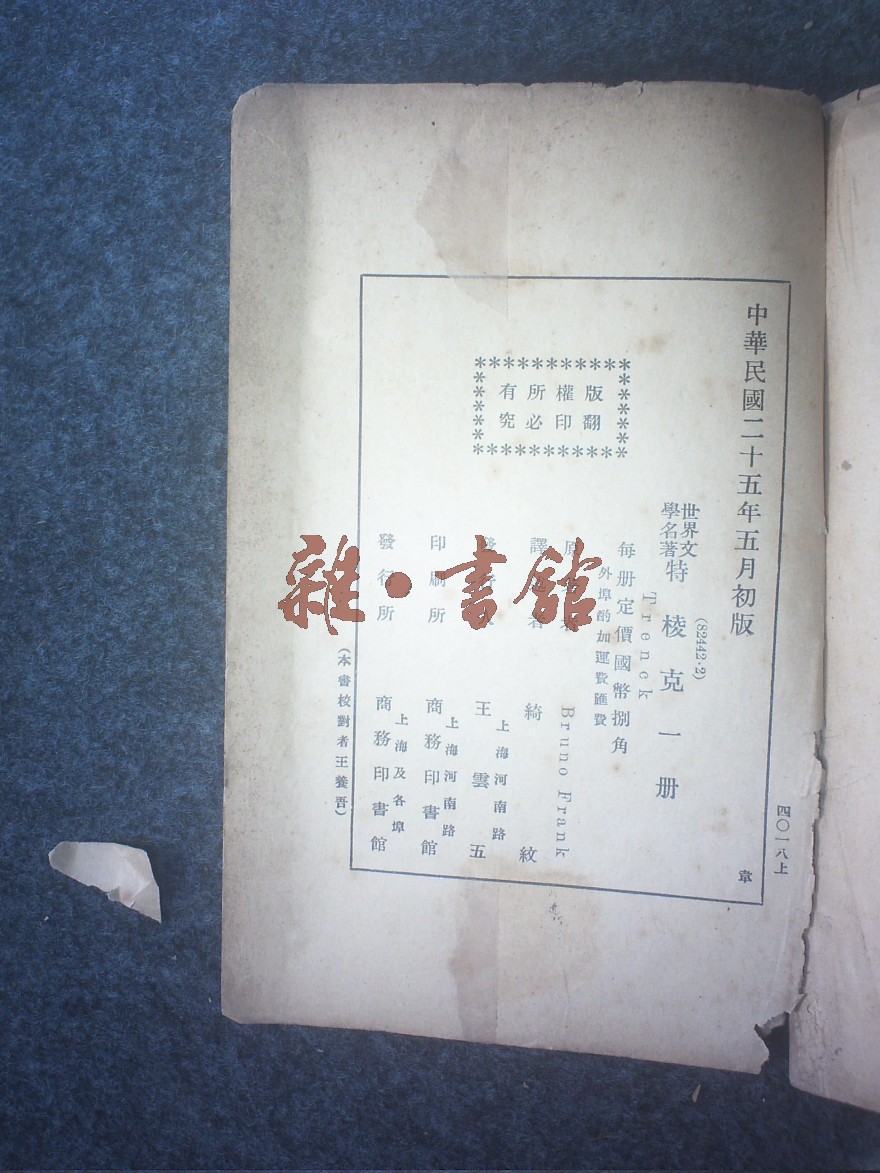 中華民國二十五年五月初版
四〇一八上
世界文學名著
特棱克一册
(82442·2)
Trenck
每册定價國幣捌角
外埠酌加運費匯費
版權所有
翻印必究
原
Bruno Frank
譯 者
綺紋
上海河南路
王雲五
印刷所
上海河南路
商務印書館
發行所
上海及各埠
商務印書館
(本書校對者王養吾)
章
雜·書館